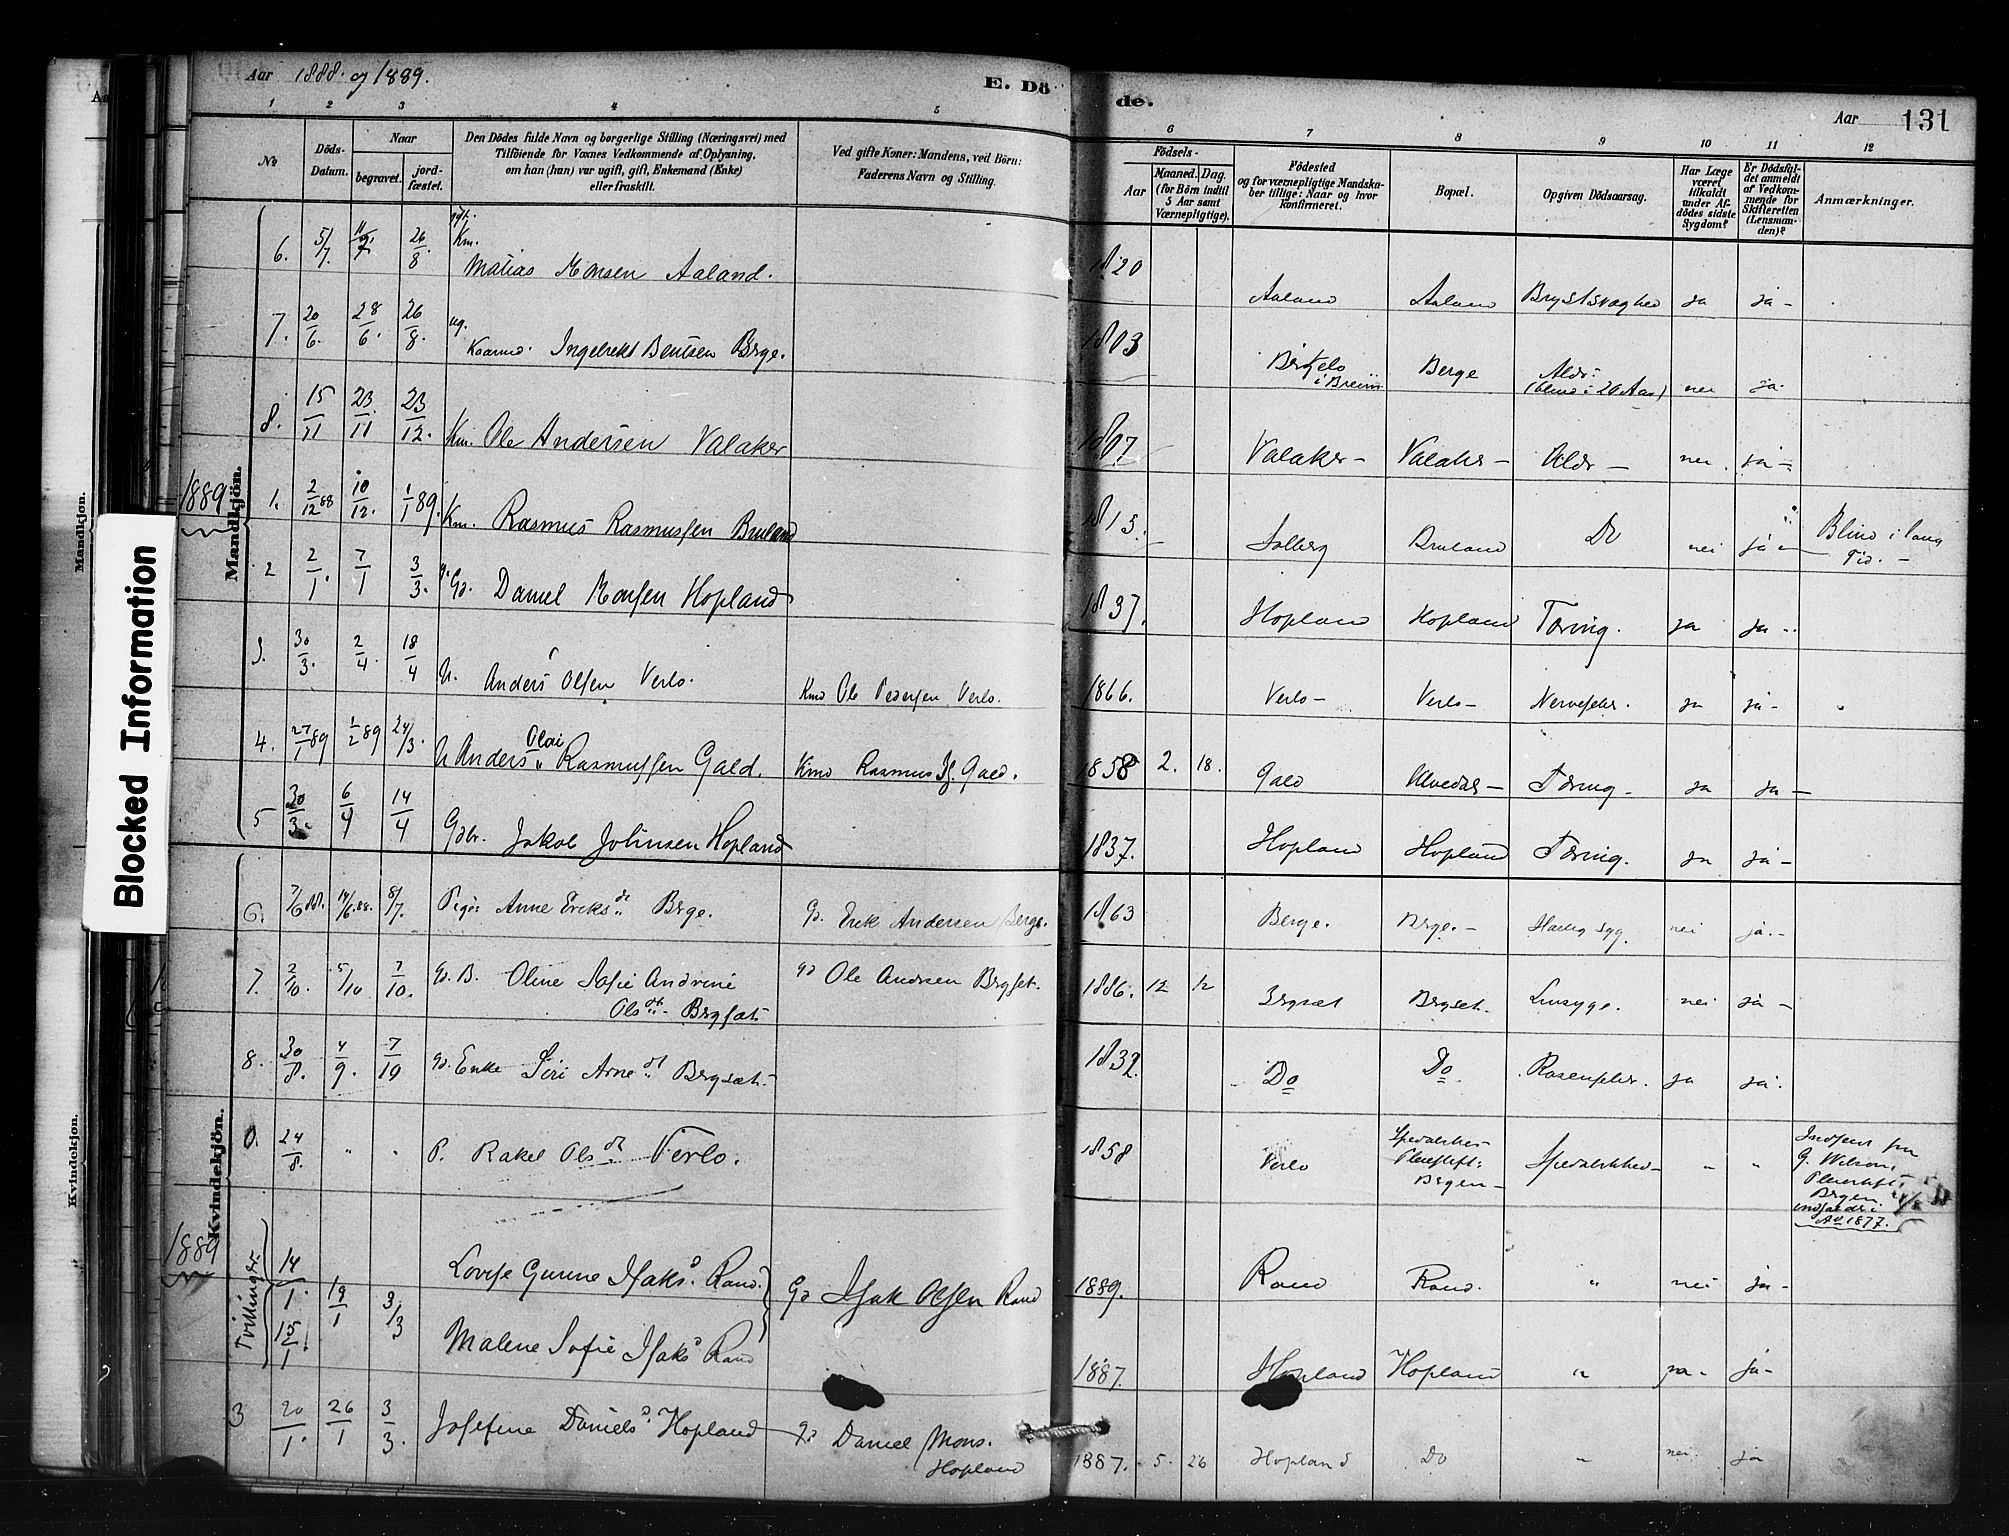 Aar 1888 og 1889.
E. Dö
de.
Aar 131
1 2 3 4 5 6 7 8 9 10 11 12
No
Döds-
Datum.
Naar
begravet.
jord-
fæstet.
Den Dödes fulde Navn og borgerlige Stilling (Næringsvei) med
Tilföiende for Voxnes Vedkommende af Oplysning,
om han (hun) var ugift, gift, Enkemand (Enke)
eller fraskilt.
Ved gifte Koner: Mandens, ved Börn:
Faderens Navn og Stilling.
Födsels-
Aar
Maaned. Dag.
(for Börn indtil
5 Aar samt
Værnepligtige).
Födested
og for værnepligtige Mandska-
ber tillige: Naar og hvor
konfirmeret.
Bopæl.
Opgiven Dödsaarsag.
Har Læge
været
tilkaldt
under Af-
dödes sidste
Sygdom?
Er Dödsfal-
det anmeldt
af Vedkom-
mende for
Skifteretten
(Lensman-
den)?
Anmærkninger.
Mandkjön.
6. 5/7. 11/7 26/8. gft. Km. Matias Monsen Aaland. 1820 Aaland Aaland Brystsvaghed ja ja-
7. 20/6. 28/6. 26/8. ug. Kaarmd. Ingebrekt Bentsen Berge. 1803 Birkelo i Breim Berge Aldr: (blind i 20 Aar) nei ja.
8. 15/11 23/11 23/12. Km. Ole Andersen Valaker 1807 Valaker- Valaker- Aldr- nei ja-
1889
1. 2/12 88 10/12. 1/1 89. Km. Rasmus Rasmussen Bruland 1813. Solberg Bruland Do nei ja- Blind i lang Tid.-
2 2/1. 7/1 3/3. g. Gd. Daniel Monsen Hopland 1837. Hopland Hopland Tæring. ja ja-
3. 30/3. 2/4. 18/4 U. Anders Olsen Verlo. Kmd Ole Pedersen Verlo. 1866. Verlo- Verlo- Nervefeber. ja ja-
4. 27/1 89 1/2 89 24/3. U Anders Olai Rasmussen Gald. Kmd Rasmus Gald. 1858 2. 18. Gald Ulvedal- Tæring- ja ja-
5 30/3. 6/4 14/4 Gdbr. Jakob Johnsen Hopland 1837. Hopland Hopland Tæring. ja ja-
Kvindekjön.
6. 7/6 88. 14/6.88. 8/7. Pige Anne Eriksdt Berge. G. Erik Andersen Berge. 1863 Berge. Berge.- syg. nei ja.-
7. 2/10. 5/10 7/10. Gd. B. Oline Sofie Andrine Olsdt- Bergset Gd Ole Andersen Bergset. 1886. 12 12 Bergset Bergset. nei ja-
8. 30/8. 4/9. 7/10 Gd. Enke Siri Arnedt Bergset. 1832. Do Do Rosenfeber. ja ja.
24/8. " " P. Rakel Olsdt Verlo. 1858 Verlo Spedalskes Pleiestift: Bergen- Spedalskhed- " " Indsent fra G. Wilson, Pleiestift Bergen
Ao 1877.
1889
Tvillinger.
14/1 19/1 3/3 Lovise Gurine Isaksd. Rand. Gd Isak Olsen Rand 1889. Rand Rand. " nei ja-
15/1 Malene Sofie Isaksd Rand 1887. Hopland Hopland " ja- ja-
3 20/1. 26/1 3/3. Josefine Danielsd. Hopland Gd Daniel Mons. Hopland 1887. 5. 26 Hopland Do " nei ja
Blocked Information
Mandkjön.
Kvindekjön.